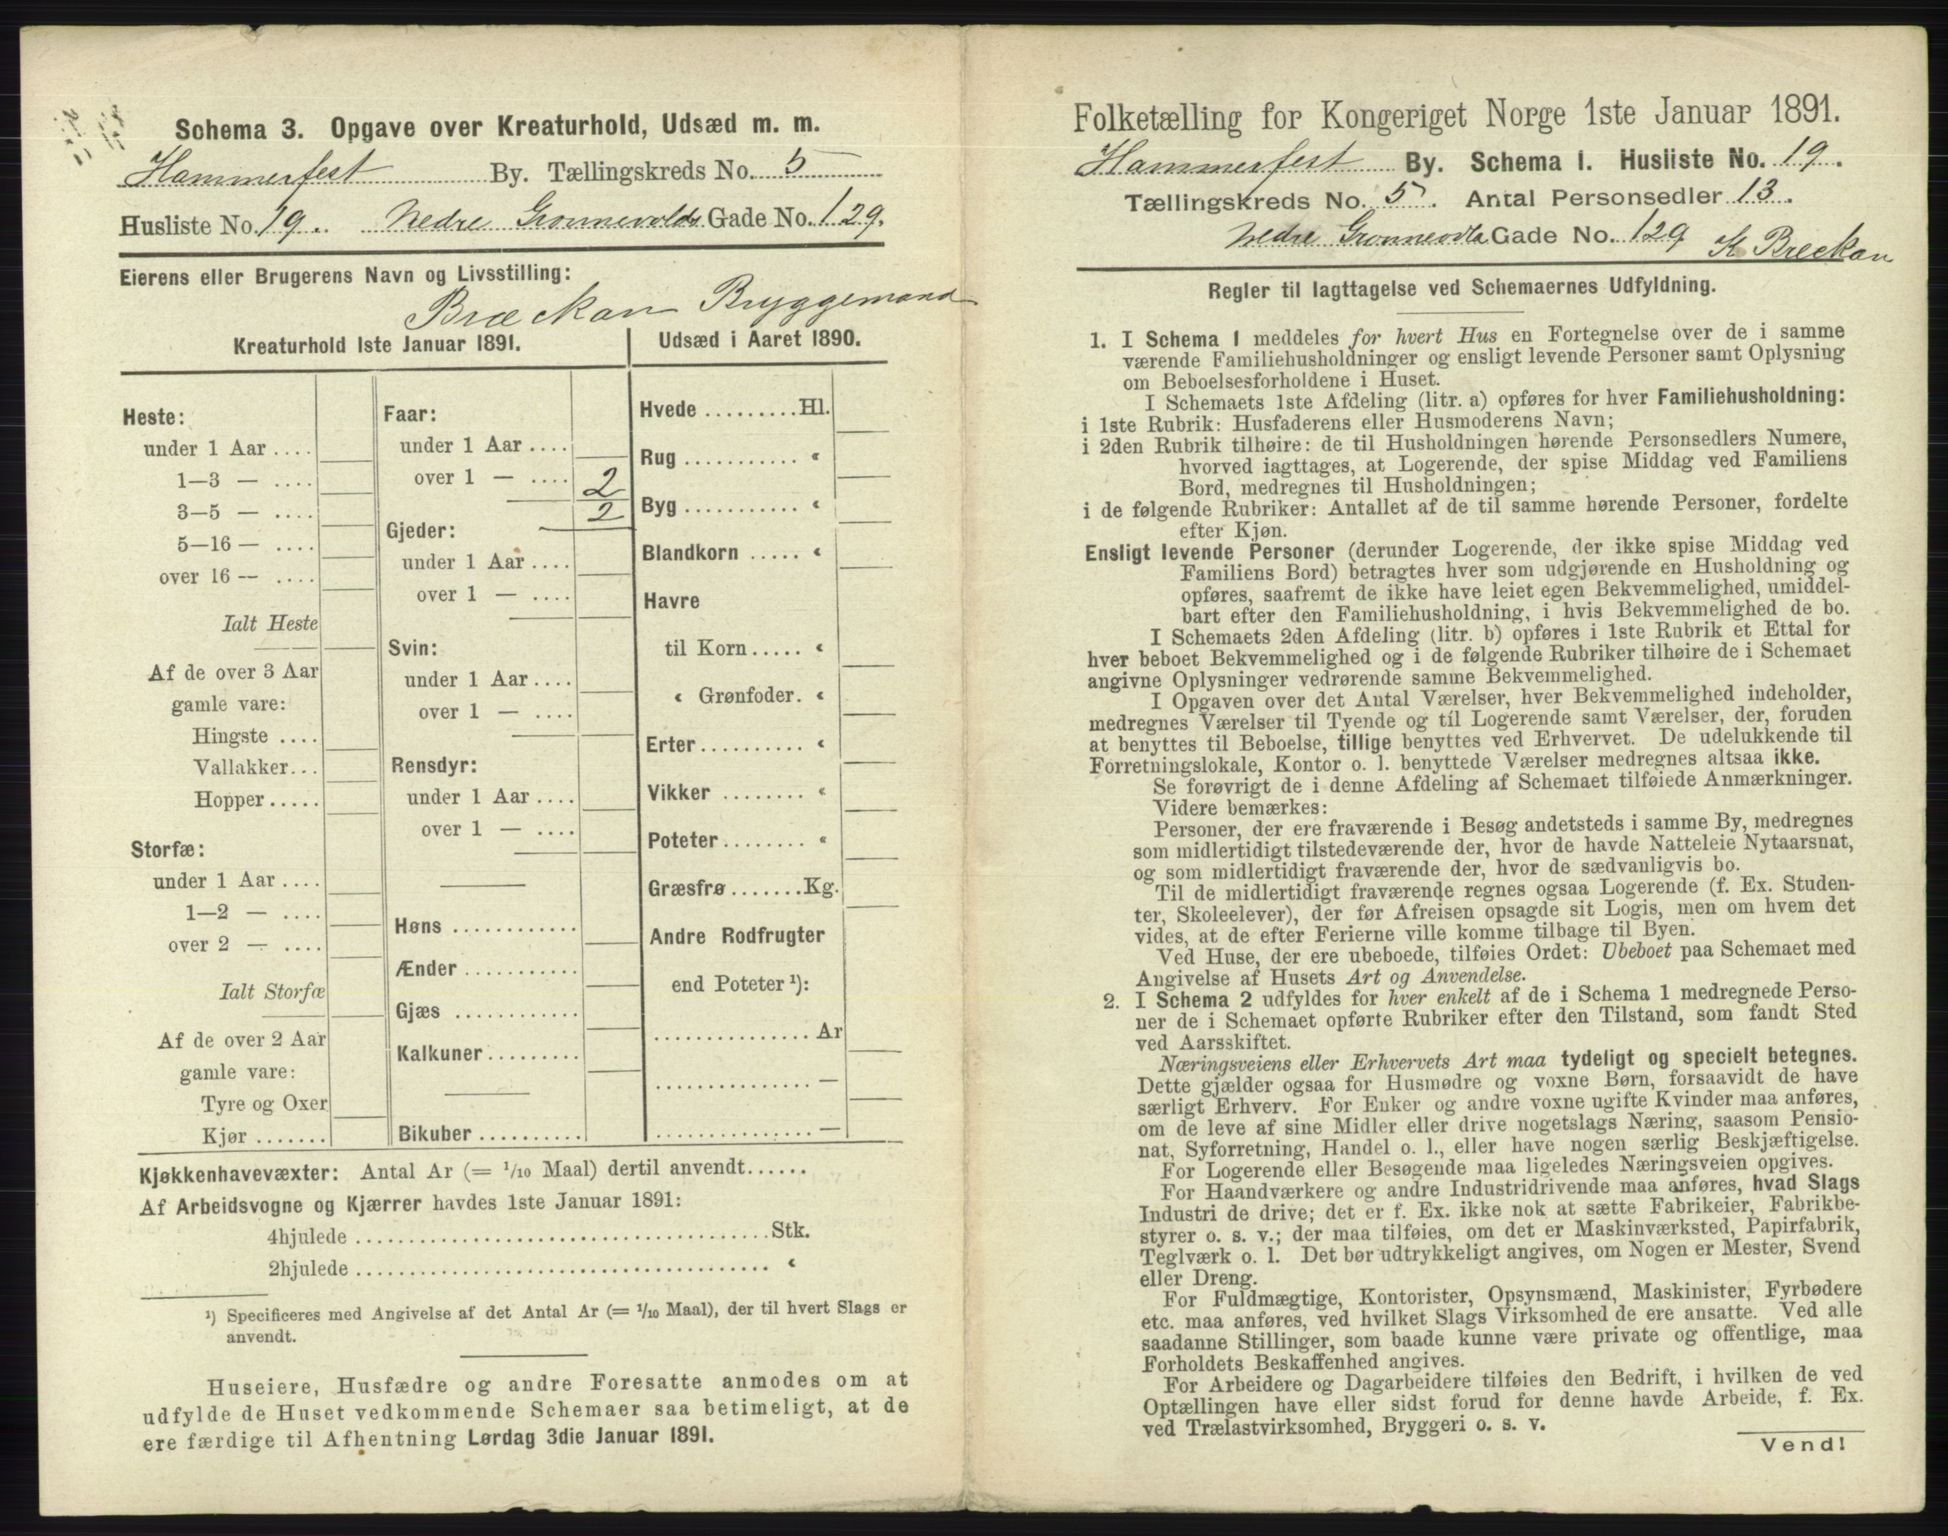 Schema 3. Opgave over Kreaturhold, Udsæd m. m.
Hammerfest By. Tællingskreds No. 5
Husliste No. 19. Nedre Grønnevolds Gade No. 129.
Eierens eller Brugerens Navn og Livsstilling:
Bræckan Bryggemand
Kreaturhold 1ste Januar 1891.
Heste:
under 1 Aar ....
1—3 — ....
3—5 — ....
5—16 — ....
over 16 — ....
Ialt Heste
Af de over 3 Aar
gamle vare:
Hingste ....
Vallakker...
Hopper.....
Storfæ:
under 1 Aar....
1—2 — ....
over 2 — ....
Ialt Storfæ
Af de over 2 Aar
gamle vare:
Tyre og Oxer
Kjør .......
Faar:
under 1 Aar ....
over 1 — .... 2
2
Gjeder:
under 1 Aar ....
over 1 — ....
Svin:
under 1 Aar....
over 1 — ....
Rensdyr:
under 1 Aar ....
over 1 — ....
Høns ............
Ænder ...........
Gjæs ............
Kalkuner.........
Bikuber..........
Udsæd i Aaret 1890.
Hvede .........Hl.
Rug .......... «
Byg .......... «
Blandkorn ..... «
Havre
til Korn..... «
« Grønfoder. «
Erter......... «
Vikker ........ «
Poteter........ «
Græsfrø.......Kg.
Andre Rodfrugter
end Poteter ¹):
............... Ar
............... —
............... —
Kjøkkenhavevæxter: Antal Ar (= 1/10 Maal) dertil anvendt......
Af Arbeidsvogne og Kjærrer havdes 1ste Januar 1891:
4hjulede ........................................Stk.
2hjulede ........................................ «
¹) Specificeres med Angivelse af det Antal Ar (= 1/10 Maal), der til hvert Slags er
anvendt.
Huseiere, Husfædre og andre Foresatte anmodes om at
udfylde de Huset vedkommende Schemaer saa betimeligt, at de
ere færdige til Afhentning Lørdag 3die Januar 1891.
Folketælling for Kongeriget Norge 1ste Januar 1891.
Hammerfest By. Schema 1. Husliste No. 19.
Tællingskreds No. 5. Antal Personsedler 13.
Nedre Grønnevolds Gade No. 129 K Breckan
Regler til Iagttagelse ved Schemaernes Udfyldning.
1. I Schema 1 meddeles for hvert Hus en Fortegnelse over de i samme
værende Familiehusholdninger og ensligt levende Personer samt Oplysning
om Beboelsesforholdene i Huset.
I Schemaets 1ste Afdeling (litr. a) opføres for hver Familiehusholdning:
i 1ste Rubrik: Husfaderens eller Husmoderens Navn;
i 2den Rubrik tilhøire: de til Husholdningen hørende Personsedlers Numere,
hvorved iagttages, at Logerende, der spise Middag ved Familiens
Bord, medregnes til Husholdningen;
i de følgende Rubriker: Antallet af de til samme hørende Personer, fordelte
efter Kjøn.
Ensligt levende Personer (derunder Logerende, der ikke spise Middag ved
Familiens Bord) betragtes hver som udgjørende en Husholdning og
opføres, saafremt de ikke have leiet egen Bekvemmelighed, umiddel-
bart efter den Familiehusholdning, i hvis Bekvemmelighed de bo.
I Schemaets 2den Afdeling (litr. b) opføres i 1ste Rubrik et Ettal for
hver beboet Bekvemmelighed og i de følgende Rubriker tilhøire de i Schemaet
angivne Oplysninger vedrørende samme Bekvemmelighed.
I Opgaven over det Antal Værelser, hver Bekvemmelighed indeholder,
medregnes Værelser til Tyende og til Logerende samt Værelser, der, foruden
at benyttes til Beboelse, tillige benyttes ved Erhvervet. De udelukkende til
Forretningslokale, Kontor o. l. benyttede Værelser medregnes altsaa ikke.
Se forøvrigt de i denne Afdeling af Schemaet tilføiede Anmærkninger.
Videre bemærkes:
Personer, der ere fraværende i Besøg andetsteds i samme By, medregnes
som midlertidigt tilstedeværende der, hvor de havde Natteleie Nytaarsnat,
og som midlertidigt fraværende der, hvor de sædvanligvis bo.
Til de midlertidigt fraværende regnes ogsaa Logerende (f. Ex. Studen-
ter, Skoleelever), der før Afreisen opsagde sit Logis, men om hvem det
vides, at de efter Ferierne ville komme tilbage til Byen.
Ved Huse, der ere ubeboede, tilføies Ordet: Ubeboet paa Schemaet med
Angivelse af Husets Art og Anvendelse.
2. I Schema 2 udfyldes for hver enkelt af de i Schema 1 medregnede Perso-
ner de i Schemaet opførte Rubriker efter den Tilstand, som fandt Sted
ved Aarsskiftet.
Næringsveiens eller Erhvervets Art maa tydeligt og specielt betegnes.
Dette gjælder ogsaa for Husmødre og voxne Børn, forsaavidt de have
særligt Erhverv. For Enker og andre voxne ugifte Kvinder maa anføres,
om de leve af sine Midler eller drive nogetslags Næring, saasom Pensio-
nat, Syforretning, Handel o. l., eller have nogen særlig Beskjæftigelse.
For Logerende eller Besøgende maa ligeledes Næringsveien opgives.
For Haandværkere og andre Industridrivende maa anføres, hvad Slags
Industri de drive; det er f. Ex. ikke nok at sætte Fabrikeier, Fabrikbe-
styrer o. s. v.; der maa tilføies, om det er Maskinværksted, Papirfabrik,
Teglværk o. l. Det bør udtrykkeligt angives, om Nogen er Mester, Svend
eller Dreng.
For Fuldmægtige, Kontorister, Opsynsmænd, Maskinister, Fyrbødere
etc. maa anføres, ved hvilket Slags Virksomhed de ere ansatte. Ved alle
saadanne Stillinger, som baade kunne være private og offentlige, maa
Forholdets Beskaffenhed angives.
For Arbeidere og Dagarbeidere tilføies den Bedrift, i hvilken de ved
Optællingen have eller sidst forud for denne havde Arbeide, f. Ex.
ved Trælastvirksomhed, Bryggeri o. s. v.
Vend!